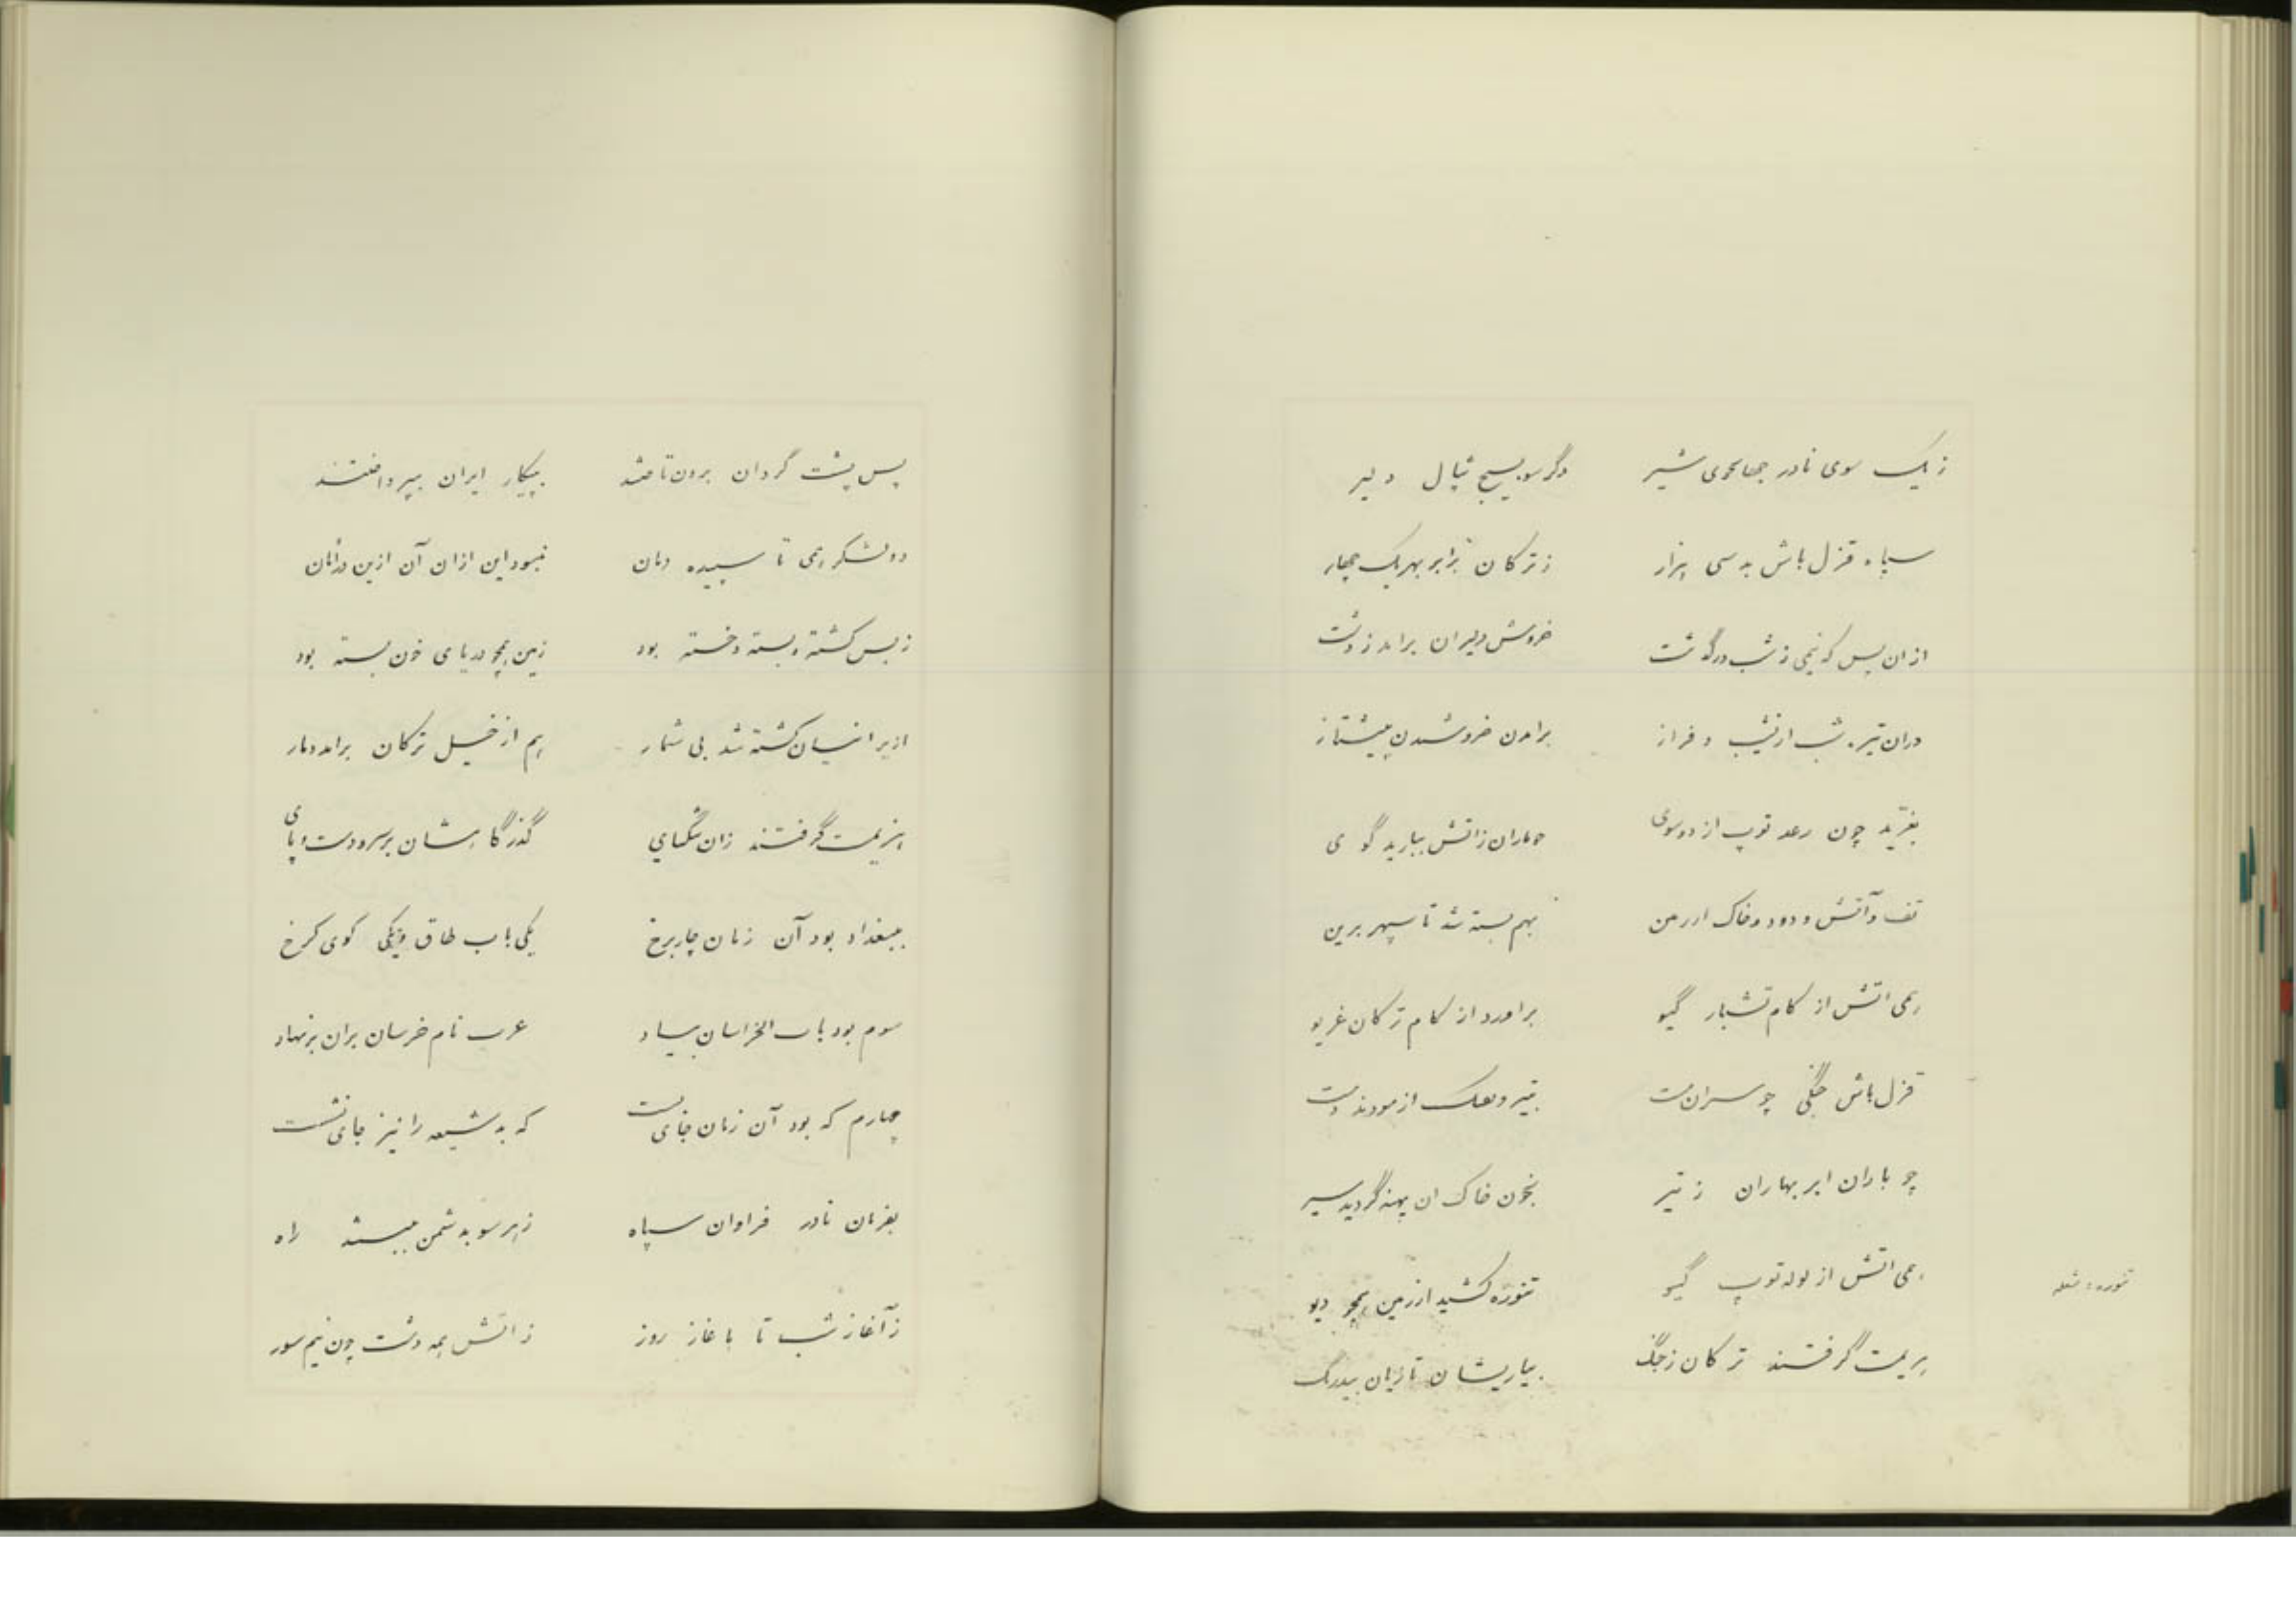 ز یک سوی نادر جهانجوی شیر    دگر سو بسیج تپال دلیر
سپاه قزل باش بد سی هزار    ز ترکان برابر بهر یک چهار
ازان پس که نیمی ز شب درگذشت    خروش دلیران برامد ز دشت
دران تیره شب از نشیب و فراز    برامدن خروشیدن پیشتاز
بغرّید چون رعد توپ از دو سوی    چو باران ز اتش ببارید گوی
تف و آتش و دود و خاک از زمین    بهم بسته شد تا سپهر برین
همی اتش از کام تشبار گیو    براورد از کام ترکان غریو
قزل باش جنگی چو سران مست    بتیر و تفنگ ازمودند دست
چو باران ابر بهاران ز تیر    بخون خاک ان پهنه گردید سیر
همی اتش از لوله توپ گیو    تنوره کشید از زمین همچو دیو
تنوره: شعله
هزیمت گرفتند ترکان ز جنگ    بیاریشان تازیان بیدرنگ
پس پشت گردان برون تاختند    بپیکار ایران بپرداختند
دو لشکر همی تا سپیده دمان    نبود این ازان آن ازین در امان
ز بس کشته و بسته و خسته بود    زمین همچو دریای خون بسته بود
از ایرانیان کشته شد بی شمار    هم از خیل ترکان برامد دمار
هزیمت گرفتند زان تنگنای    گذرگاهشان بر سر و دست و پای
ببغداد بود آن زمان چار برخ    یکی باب طاق و یکی کوی کرخ
سوم بود باب الخراسان بیاد    عرب نام خرسان بران بر نهاد
چهارم که بود آن زمان جای بست    که بد شیعه را نیز جای نشست
بفرمان نادر فراوان سپاه    ز هر سو بدشمن ببستند راه
ز آغاز شب تا باغاز روز    ز اتش همه دشت چون نیم سوز